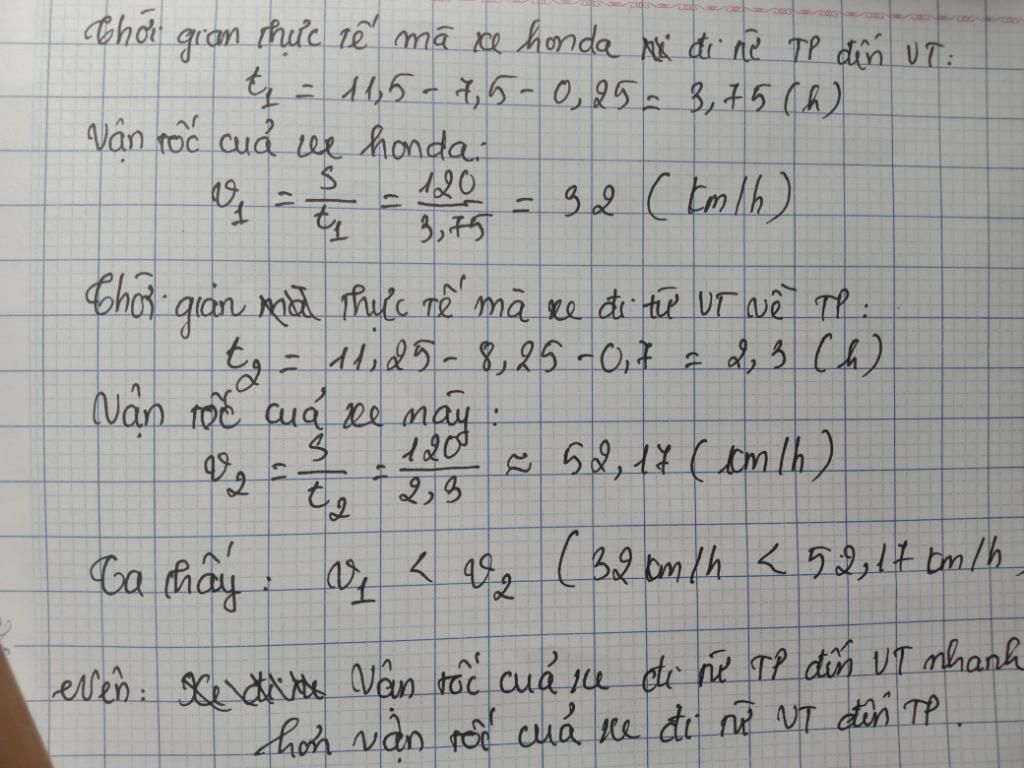 Thời gian thực tế mà xe honda đi từ TP đến VT:
t₁ = 11,5 - 7,5 - 0,25 = 3,75 (h)
Vận tốc cuả xe honda:
v₁ = S/t₁ = 120/3,75 = 32 (km/h)
Thời gian thực tế mà xe đi từ VT về TP:
t₂ = 11,25 - 8,25 - 0,7 = 2,3 (h)
Vận tốc cuả xe máy:
v₂ = S/t₂ = 120/2,3 ≈ 52,17 (km/h)
Ta thấy: v₁ < v₂ (32 km/h < 52,17 km/h)
Nên: Vận tốc cuả xe đi từ TP đến VT nhanh
hơn vận tốc cuả xe đi từ VT đến TP.